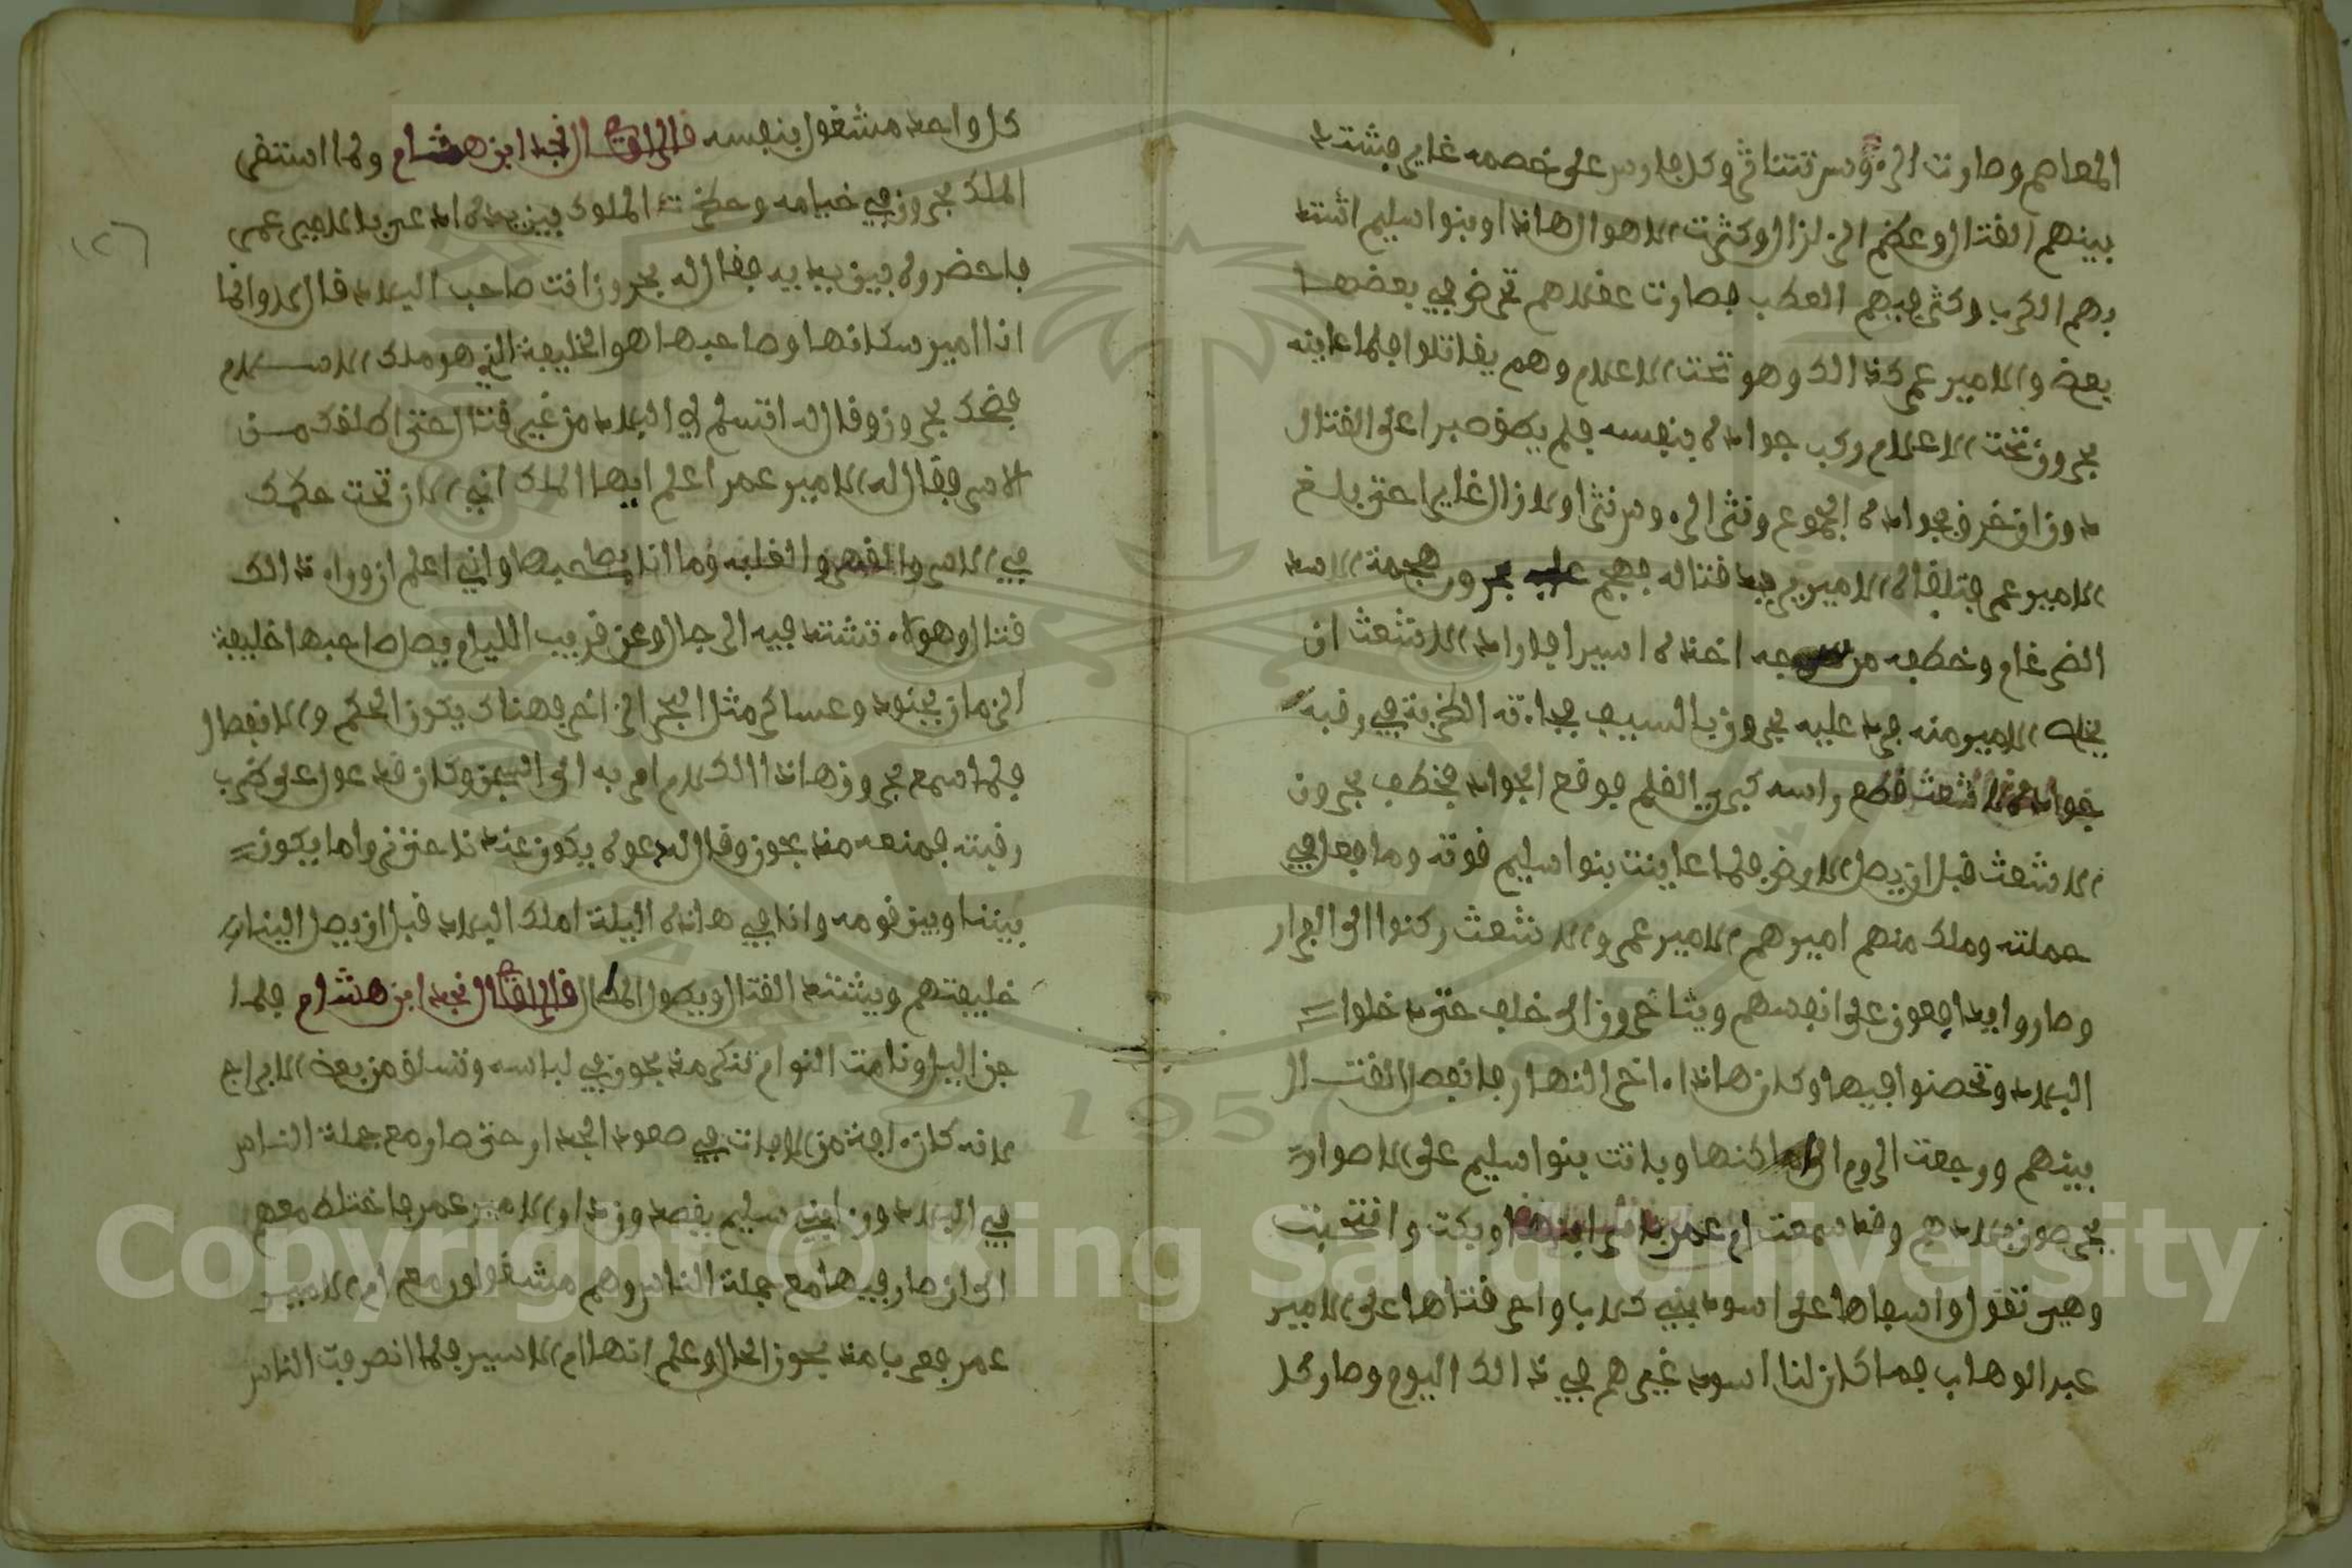 المعاصم وصارت الرءوس تتناثر وكل فارس على خصمه غاير فشتد
بينهم القتال وعظم الزلزال وكثرت الاهوال هاذا وبنوا سليم اشتد
بهم الكرب وكثر فيهم العطب فصارت عقلاهم تحرض في بعضها
بعض والامير عمر كذالك وهو تحت الاعلام وهم يقاتلوا فلما عاينه
بحرون تحت الاعلام وكب جواده بنفسه فلم يطق صبرا على القتال
دون ان خرق بجواده الجموع ونثر الرءوس نثرا ولازال غايرا حتى بلغ
الامير عمر فتلقاه الامير يريد قتاله فهجم عليه بحرون هجمة الاسد
الضرغام وخطفه من سرجه اخذه اسيرا فاراد الاشعث ان
يخلص الامير منه فرد عليه بحرون بالسيف فجاءته الضربة في رقبة
جواد الاشعث قطع راسه كبري القلم فوقع الجواد فخطف بحرون
الاشعث قبل ان يصل الارض فلما عاينت بنوا سليم قوته وما فعل في
حملته وملك منهم اميرهم الامير عمر والاشعث ركنوا الى الفرار
وصاروا يدافعون على انفسهم ويتأخرون الى خلف حتى دخلوا
البلاد وتحصنوا فيها وكان هاذا ءاخر النهار فانفصل القتال
بينهم ورجعت الروم الى اماكنها وباتت بنوا سليم على الاصوار
يحرصون بلادهم وقد سمعت ام عمر باسر ابنها وبكت وانتحبت
وهي تقول واسفاها على اسود بني كلاب واحر قتاها على الامير
عبد الوهاب فما كان لنا اسود غيرهم في ذالك اليوم وصار كل
كل واحد مشغول بنفسه قال الراوي النجد ابن هشام ولما استقر
الملك بحرون في خيامه وحضرت الملوك بين يديه امد عبر بالامير عمر
فاحضروه بين يديه فقال له بحرون انت صاحب البلاد قال لا وانما
انا امير سكانها وصاحبها هو الخليفة الذي هو ملك الاسلام
فضحك بحرون وقال له اتسلم لي البلاد من غير قتال حتى اطلقك من
الاسر فقال له الامير عمر اعلم ايها الملك اني الان تحت حكمك
في الاسر والقهر والغلبه وما انا بصاحبها واني اعلم ان وراء ذالك
قتال وهولاء تشتد فيه الرجال وعن قريب الليام يصل صاحبها خليفة
الزمان بجنود وعساكر مثل البحر الزاخر فهناك يكون الحكم والانفصال
فلما سمع بحرون هاذا الكلام امر به الى السجن وكان قد عول على ضرب
رقبته فمنعه منه بحون وقال له دعوه يكون عندنا حتى نروا ما يكون
بيننا وبين قومه وانا في هاذه اليلة املك البلاد قبل ان يصل الينا
خليفتهم ويشتد القتال ويطول المطال قال الراوي النجد ابن هشام فلما
جن اليل ونامت النوام تنكر منه بحون في لباسه وتسلق من بعض الابراج
لانه كان ءافة من الافات في صعود الجدار حتى صار مع جملة الناس
في البلاد وراء بني سليم يقصدون دار الامير عمر فاختلط معهم
الى ان صار فيها مع جملة الناس وهم مشغولون مع ام الامير
عمر فعرف منه بحون الحال وعلم انها ام الاسير فلما انصرفت الناس